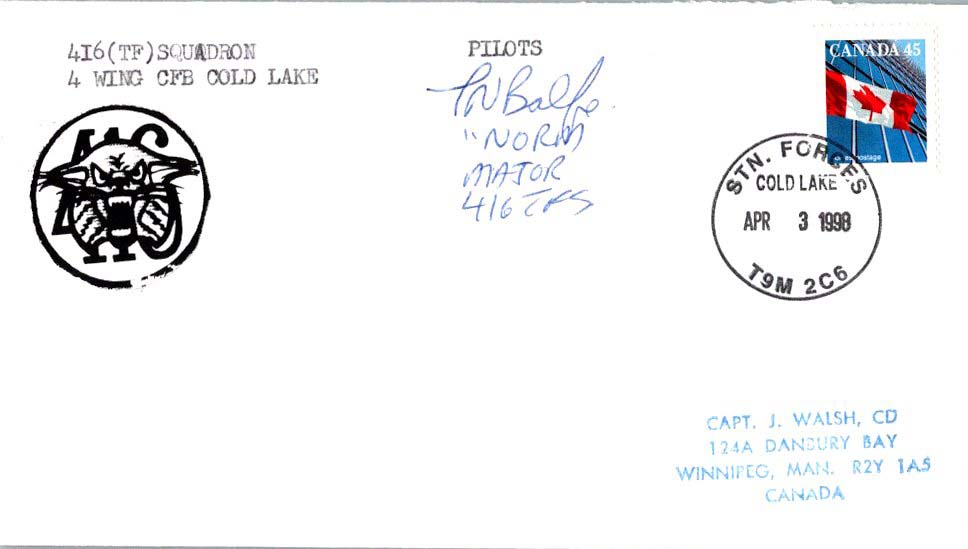 416(TF)SQUADRON
4 WING CFB COLD LAKE
416
PILOTS
"NORM
MAJOR
416 TFS
CANADA 45
postage
STN. FORCES
COLD LAKE
APR 3 1998
T9M 2C6
CAPT. J. WALSH, CD
124A DANBURY BAY
WINNIPEG, MAN. R2Y 1A5
CANADA